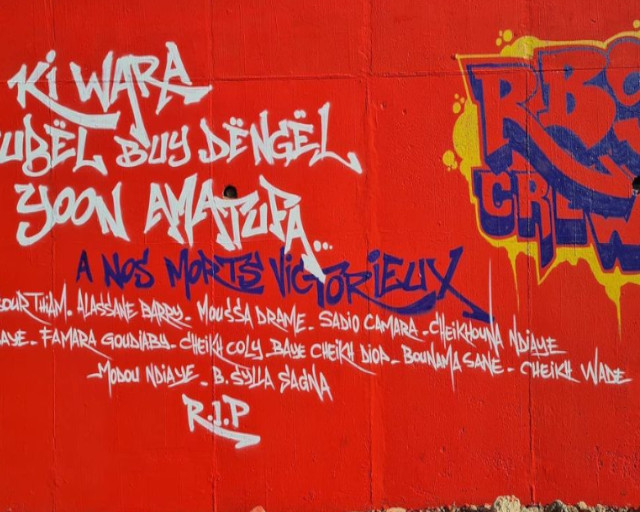 Ki WARA
UBËL BUY DËNGËL
YOON AMATUFA...
A NOS MORTS VICTORIEUX
RBS
CREW
OUR THIAM. ALASSANE BARRY. MOUSSA DRAME. SADIO CAMARA. CHEIKHOUNA NDIAYE
AYE. FAMARA GOUDIABY. CHEIKH COLY. BAYE CHEIKH DIOP. BOUNAMA SANE. CHEIKH WADE
MODOU NDIAYE. B. SYLLA SAGNA
R.I.P